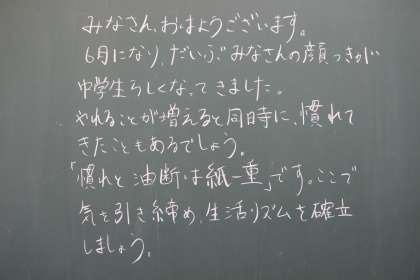 みなさん、おはようございます。
6月になり、だいぶみなさんの顔つきが
中学生らしくなってきました。
やれることが増えると同時に、慣れて
きたこともあるでしょう。
「慣れと油断は紙一重」です。ここで
気を引き締め、生活リズムを確立
しましょう。